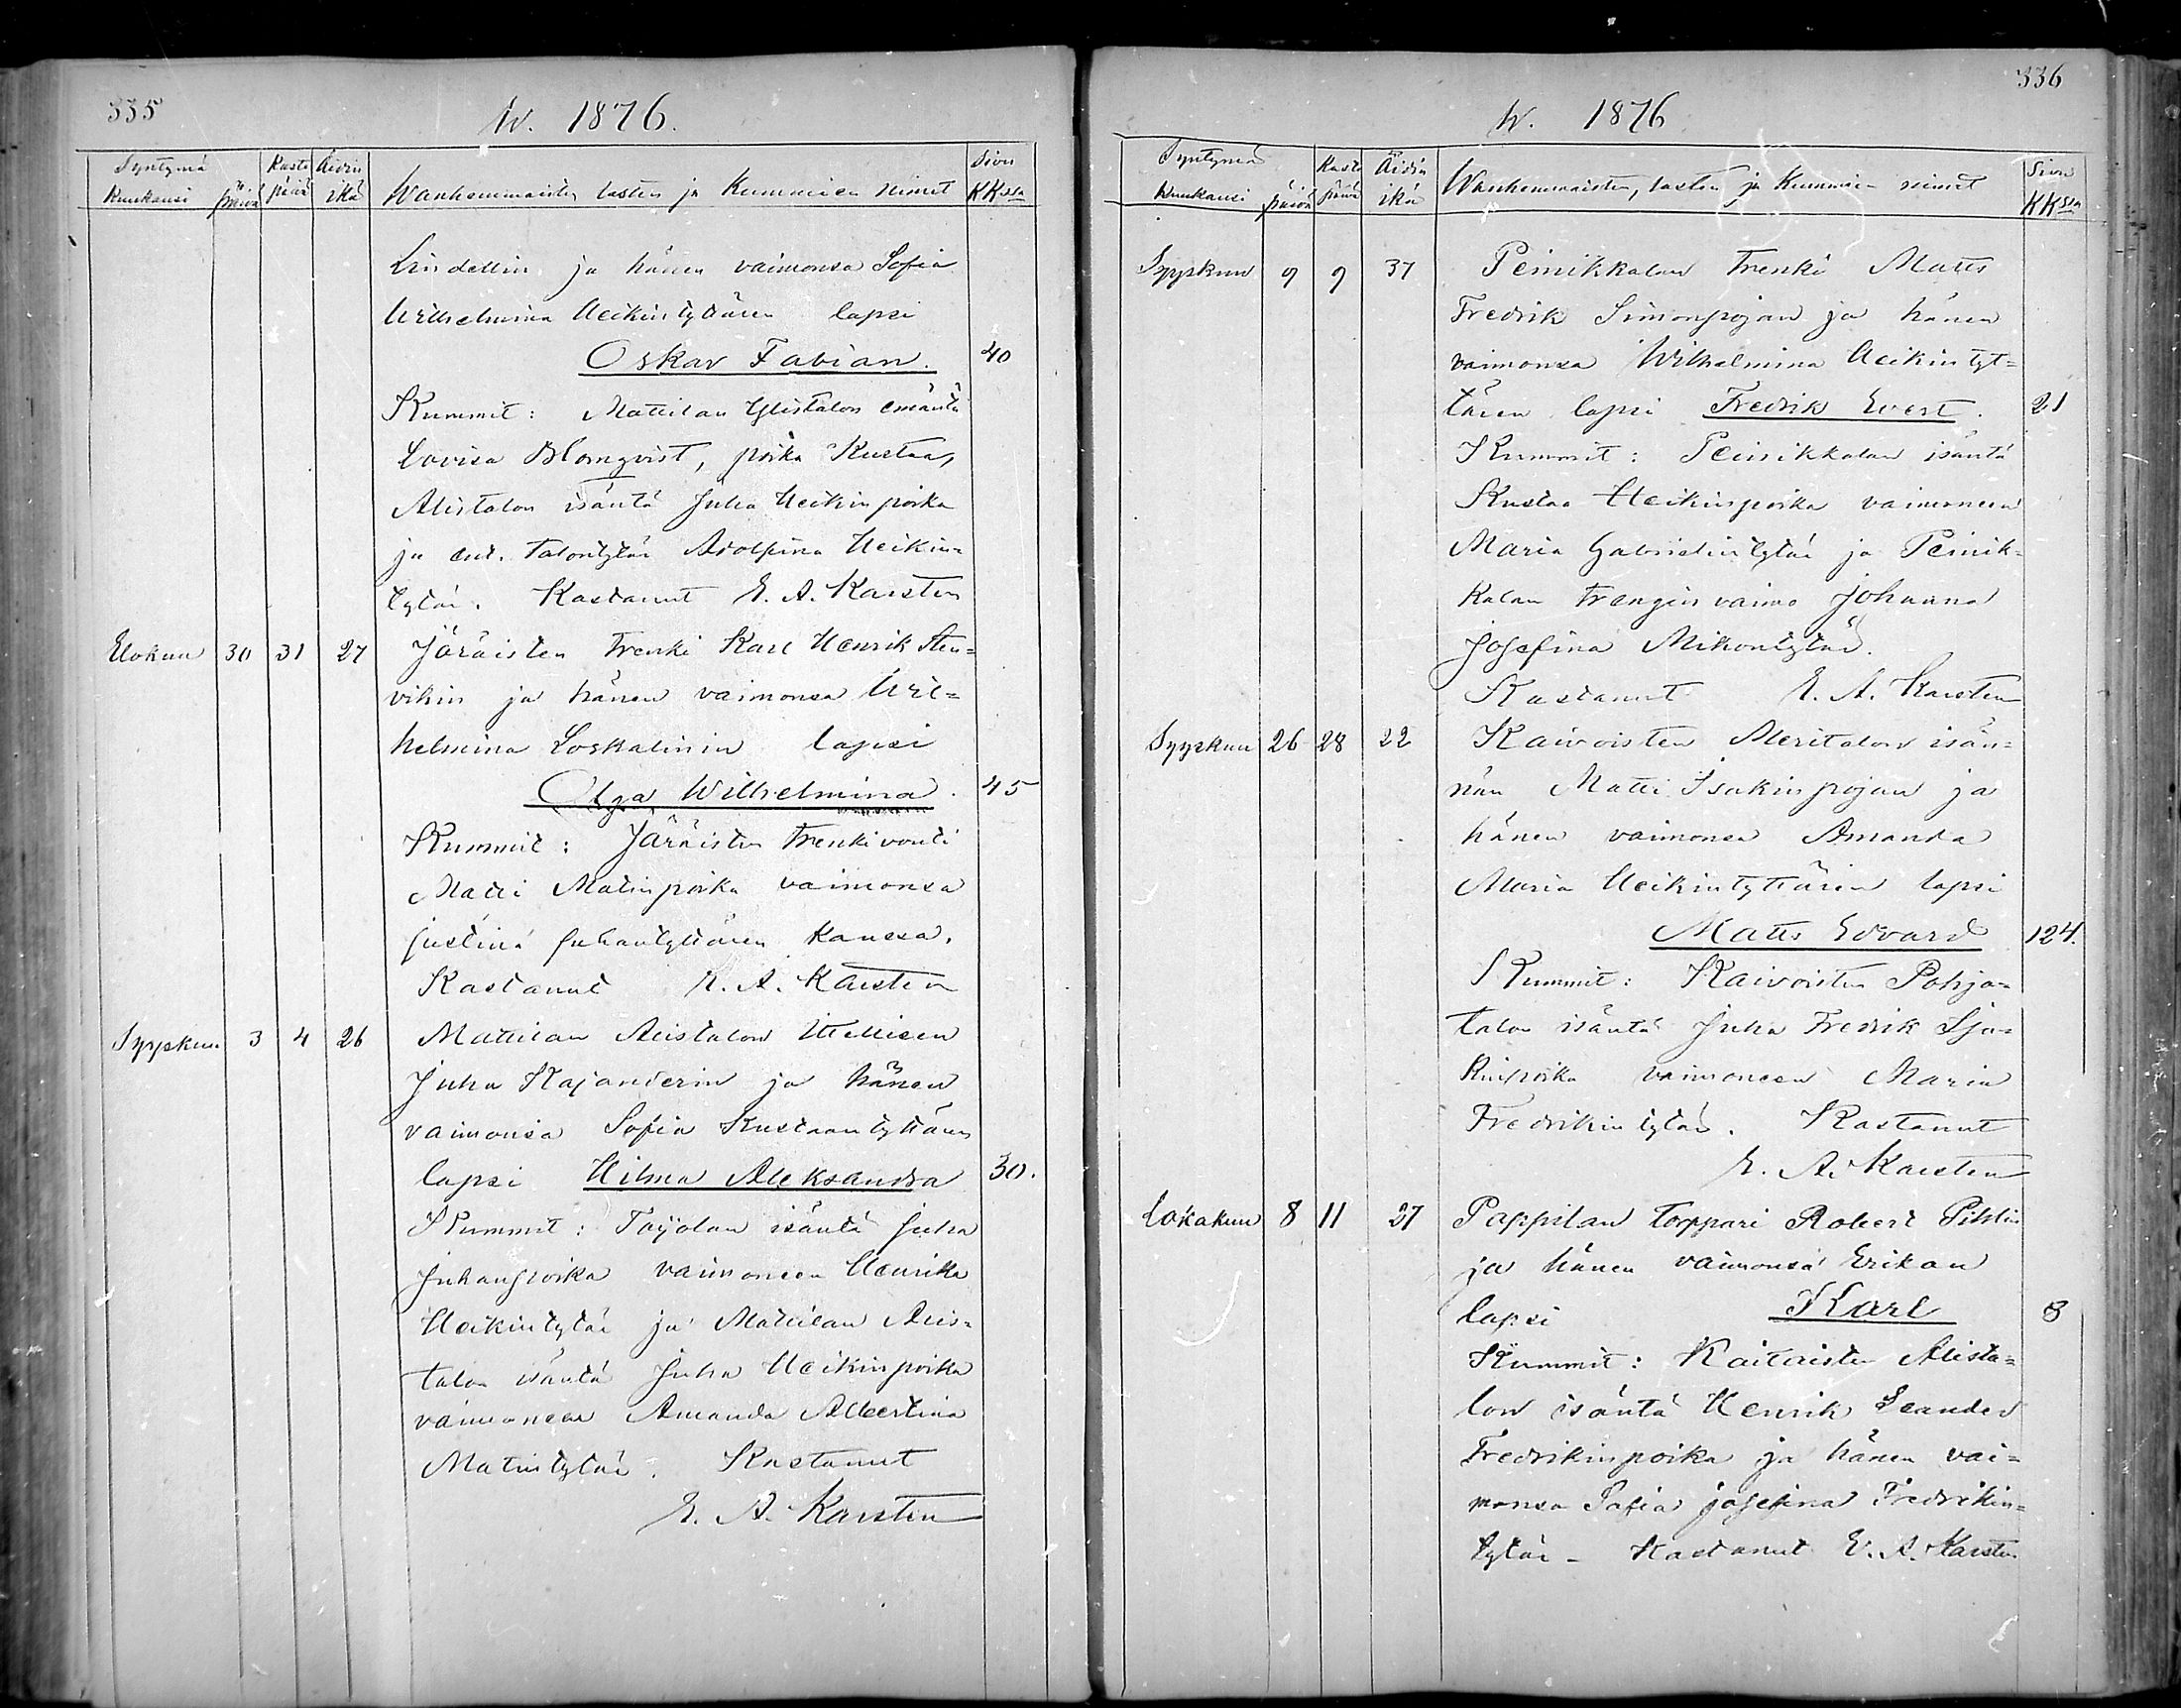 335
w. 1876.
Syntymä Kaste Äidin Sivu
Kuukausi päivä päivä ikä Wanhemmaisten lasten ja Kummien nimet KKssa
Lindellin ja hänen vaimonsa Sofia
Wilhelmina Heikintyttären lapsi
Oskar Fabian. 40
Kummit: Mattilan Ylistalon emäntä
Lovisa Blomqvist, poika Kustaa,
Alistalon isäntä Juha Heikinpoika
ja ent. talontytär Adolfina Heikin=
tytär. Kastanut E. A. Karsten
Elokuu 30 31 27 Järäisten trenki Karl Henrik Sten=
vikin ja hänen vaimonsa Wil=
helmina Loskalinin lapsi
Olga Wilhelmina. 45
Kummit: Järäisten trenkivouti
Matti Matinpoika vaimonsa
Justina Juhantyttären kanssa.
Kastanut E. A. Karsten
Syyskuu 3 4 26 Mattilan Alistalon Itellisen
Juha Kajanderin ja hänen
vaimonsa Sofia Kustaantyttären
lapsi Hilma Aleksandra 30.
Kummit: Toijolan isäntä Juha
Juhanpoika vaimoneen Henrika
Heikintytär ja Mattilan Alis=
talon isäntä Juha Heikinpoika
vaimoneen Amanda Albertina
Matintytär. Kastanut
E. A. Karsten
336
w. 1876
Syntymä Kaste Äidin Sivu
Kuukausi päivä päivä ikä Wanhemmaisten, lasten ja Kummien nimet KKssa
Syyskuu 9 9 37 Peinikkalan trenki Matts
Fredrik Simonpojan ja hänen
vaimonsa Wilhelmina Heikintyt=
tären lapsi Fredrik Evert. 21
Kummit: Peinikkalan isäntä
Kustaa Heikinpoika vaimoneen
Maria Gabrielintytär ja Peinik=
kalan trengin vaimo Johanna
Josefina Mikontytär.
Kastanut E. A. Karsten
Syyskuu 26 28 22 Kaivoisten Meritalon isän=
nän Matti Isakinpojan ja
hänen vaimonsa Amanda
Maria Heikintyttären lapsi
Matts Edvard 124.
Kummit: Kaivoisten Pohja=
talon isäntä Juha Fredrik Isa=
kinpoika vaimoneen Maria
Fredrikintytär. Kastanut
E. A. Karsten
Lokakuu 8 11 27 Pappilan torppari Robert Pihlin
ja hänen vaimonsa Erikan
lapsi Karl 8
Kummit: Kaitaisten Alista=
lon isäntä Henrik Leander
Fredrikinpoika ja hänen vai=
monsa Sofia Josefina Fredrikin=
tytär - Kastanut E. A. Karsten